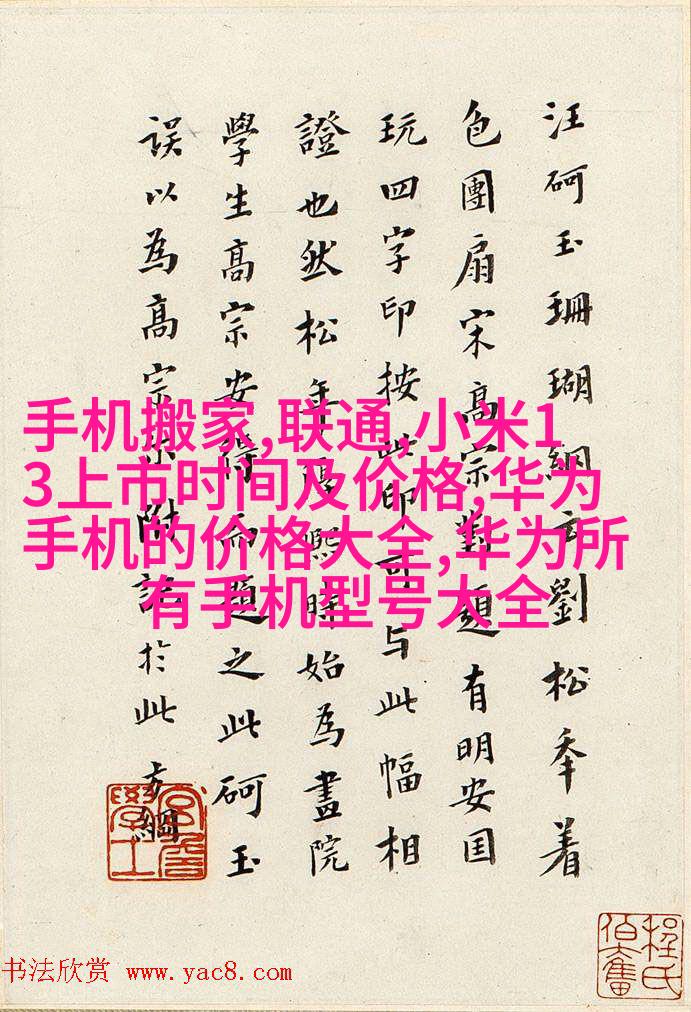 汪砢玉珊瑚網云劉松年着
色團扇宋高宗對題有明安国
玩四字印按此印可与此幅相
證也然松年淳熙時始為畫院
學生高宗安得而題之此砢玉
誤以為高宗尔附記於此方綱
手机搬家,联通,小米1
3上市时间及价格,华为
手机的价格大全,华为所
有手机型号大全
程氏
伯奮
书法欣赏 www.yac8.com